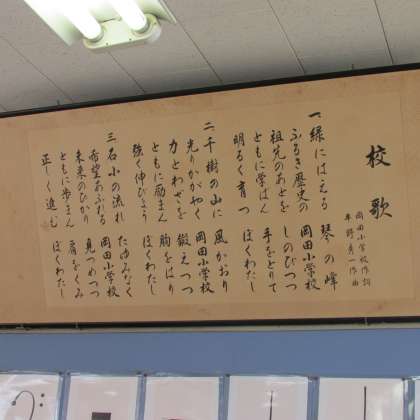 校歌
岡田小学校作詞
平野勇一作曲
一 緑にはえる 琴の峰
ふるき歴史の 岡田小学校
祖先のあとを しのびつつ
ともに学ばん 手をとりて
明るく育つ ぼくわたし
二 千樹の山に 風かおり
光りかがやく 岡田小学校
力とわざを 鍛えつつ
ともに励まん 胸をはり
強く伸びよう ぼくわたし
三 石小の流れ たゆみなく
希望あふるる 岡田小学校
未来のひかり 見つめつつ
ともに歩まん 肩をくみ
正しく進む ぼくわたし